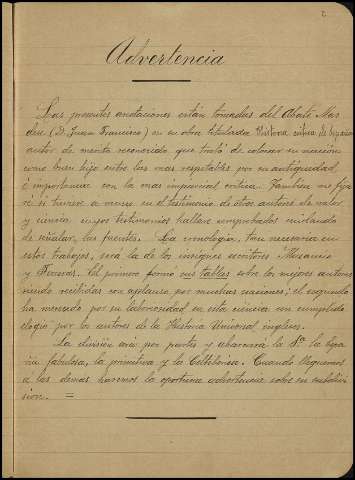 2
Advertencia
Las presentes anotaciones están tomadas del Abate Mas
deu (D. Juan Francisco) en su obra titulada Historia crítica de España
autor de merito reconocido que trató de colocar su nación
como buen hijo entre las mas respetables por su antigüedad
é importancia con la mas imparcial critica. Tambien me fija
ré si tuviese a mano, en el testimonio de otros autores de valor
y ciencia en cuyos testimonios hallare comprobados cuidando
de señalar las fuentes. La cronología, tan necesaria en
estos trabajos, será la de los insignes escritores Musancio
y Tiraval. El primero formó sus tablas sobre los mejores autores
siendo recibidas con aplauso por muchas naciones; el segundo
ha merecido por su laboriosidad en esta ciencia un cumplido
elogio por los autores de la Historia Universal inglesa.
La división será por partes y abarcará la 1ª la Espa
ña fabulosa, la primitiva y la Celtibérica. Cuando lleguemos
á las demas haremos la oportuna advertencia sobre su subdivi-
sion. =